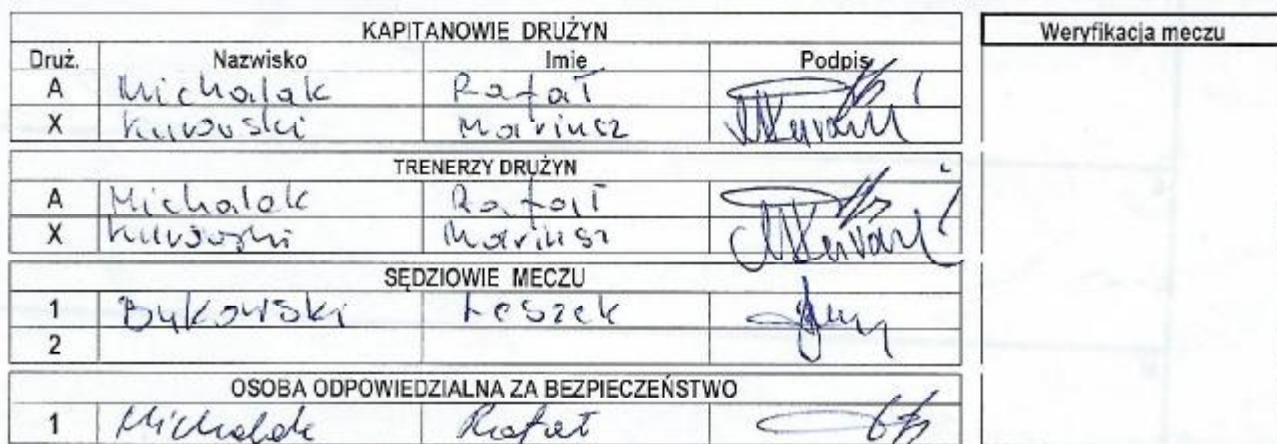 KAPITANOWIE DRUŻYN
Weryfikacja meczu
Druż. Nazwisko Imię Podpis
A Michalak Rafał
X Kurowski Mariusz
TRENERZY DRUŻYN
A Michalak Rafał
X Kurowski Mariusz
SĘDZIOWIE MECZU
1 Bykowski Leszek
2
OSOBA ODPOWIEDZIALNA ZA BEZPIECZEŃSTWO
1 Michalak Rafał